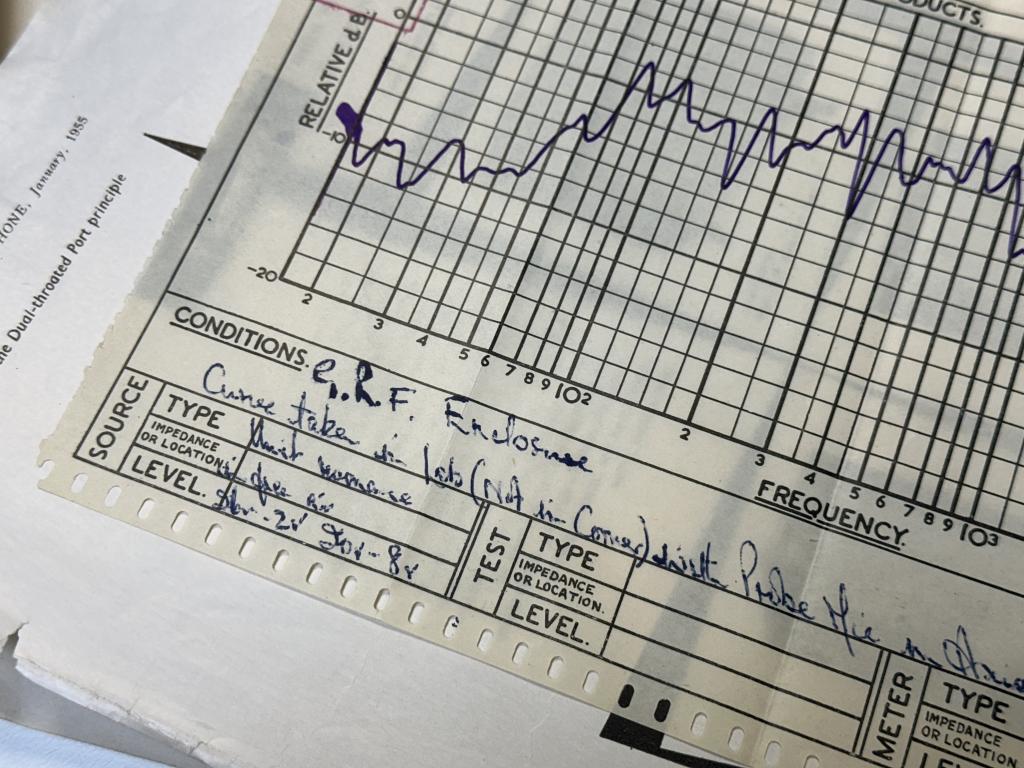 HONE, January, 1955
he Dual-throated Port principle
DUCTS.
RELATIVE d.B.
0
-20
2 3 4 5 6 7 8 9 10² 2 3 4 5 6 7 8 9 10³
FREQUENCY
CONDITIONS. G.R.F. Enclosure
Curve taken in lab (Not in Corner) with Probe Mic on Axis
SOURCE
TYPE
IMPEDANCE
OR LOCATION.
LEVEL.
Unit
TEST
TYPE
IMPEDANCE
OR LOCATION.
LEVEL.
METER
TYPE
IMPEDANCE
OR LOCATION